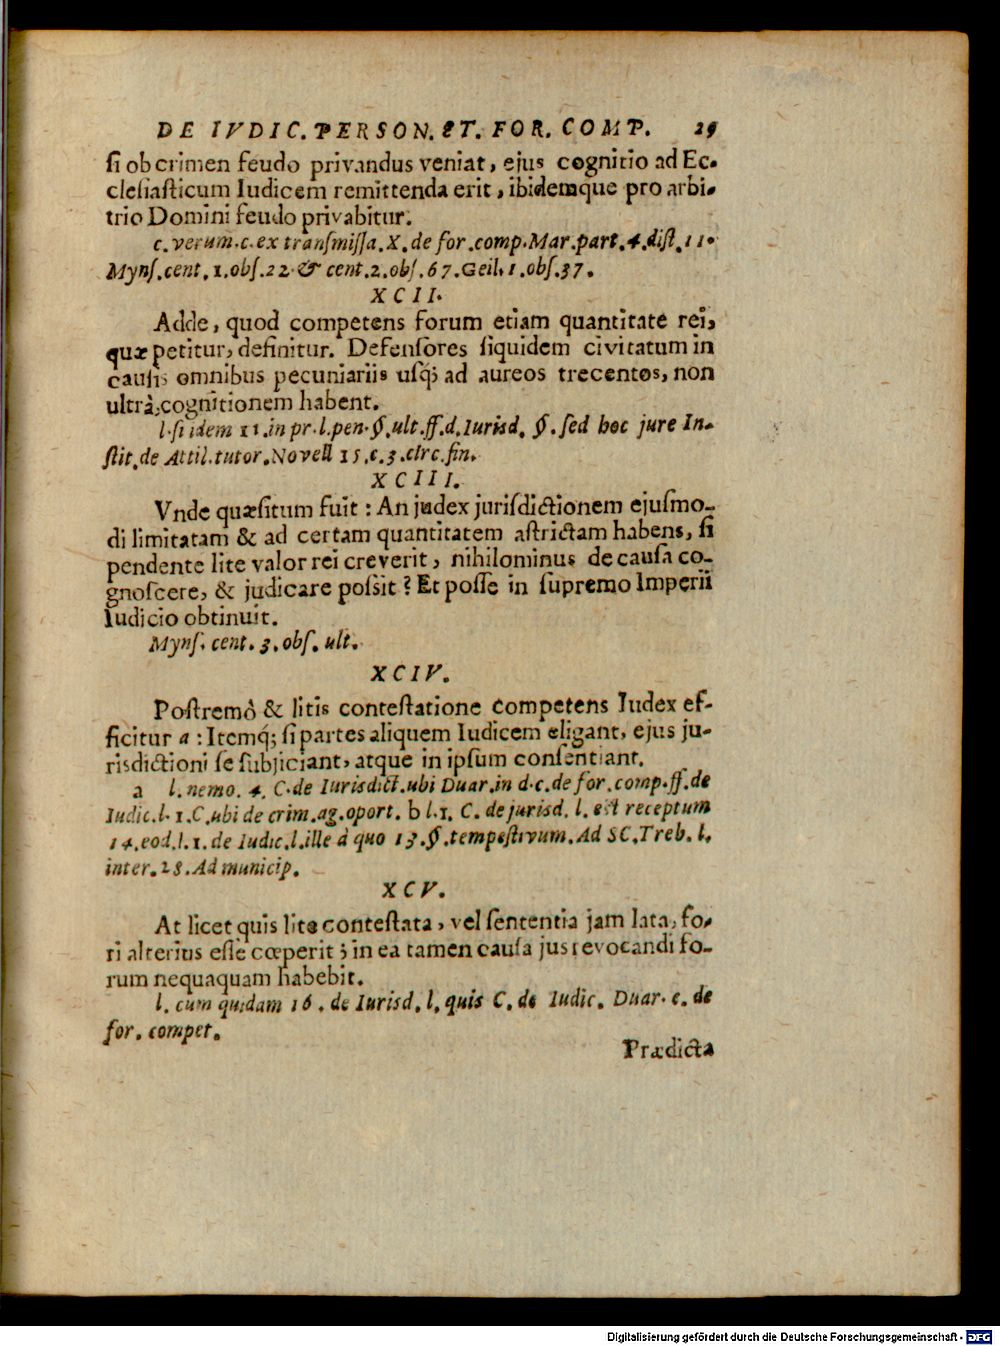 DE IVDIC. PERSON. ET. FOR. COMP. 29
ſi ob crimen feudo privandus veniat, ejus cognitio ad Ec-
cleſiaſticum Iudicem remittenda erit, ibidemque pro arbi-
trio Domini feudo privabitur.
c. verum. c. ex tranſmiſſa. X. de for. comp. Mar. part. 4. diſt. 11.
Mynſ. cent. 1. obſ. 22. & cent. 2. obſ. 67. Geil. 1. obſ. 37.
XCII.
Adde, quod competens forum etiam quantitate rei,
quæ petitur, definitur. Defenſores ſiquidem civitatum in
cauſis omnibus pecuniariis uſq; ad aureos trecentos, non
ultrà, cognitionem habent.
l. ſi idem 11. in pr. l. pen. §. ult. ff. d. Iurisd. §. ſed hoc jure In-
ſtit. de Attil. tutor. Novell 15. c. 3. circ. fin.
XCIII.
Vnde quæſitum fuit: An judex jurisdictionem ejuſmo-
di limitatam & ad certam quantitatem aſtrictam habens, ſi
pendente lite valor rei creverit, nihilominus de cauſa co-
gnoſcere, & judicare poſſit? Et poſſe in ſupremo Imperii
Iudicio obtinuit.
Mynſ. cent. 3. obſ. ult.
XCIV.
Poſtremò & litis conteſtatione competens Iudex ef-
ficitur a: Itemq; ſi partes aliquem Iudicem eligant, ejus ju-
risdictioni ſe ſubjiciant, atque in ipſum conſentiant.
a l. nemo. 4. C. de Iurisdict. ubi Duar. in d. c. de for. comp. ff. de
Iudic. l. 1. C. ubi de crim. ag. oport. b l. 1. C. de jurisd. l. est receptum
14. eod. l. 1. de Iudic. l. ille à quo 13. §. tempeſtivum. Ad SC. Treb. l.
inter. 28. Ad municip.
XCV.
At licet quis lite conteſtata, vel ſententia jam lata, fo-
ri alterius eſſe cœperit; in ea tamen cauſa jus revocandi fo-
rum nequaquam habebit.
l. cum quædam 16. de Iurisd. l. quis C. de Iudic. Duar. c. de
for. compet.
Prædicta
Digitalisierung gefördert durch die Deutsche Forschungsgemeinschaft - DFG